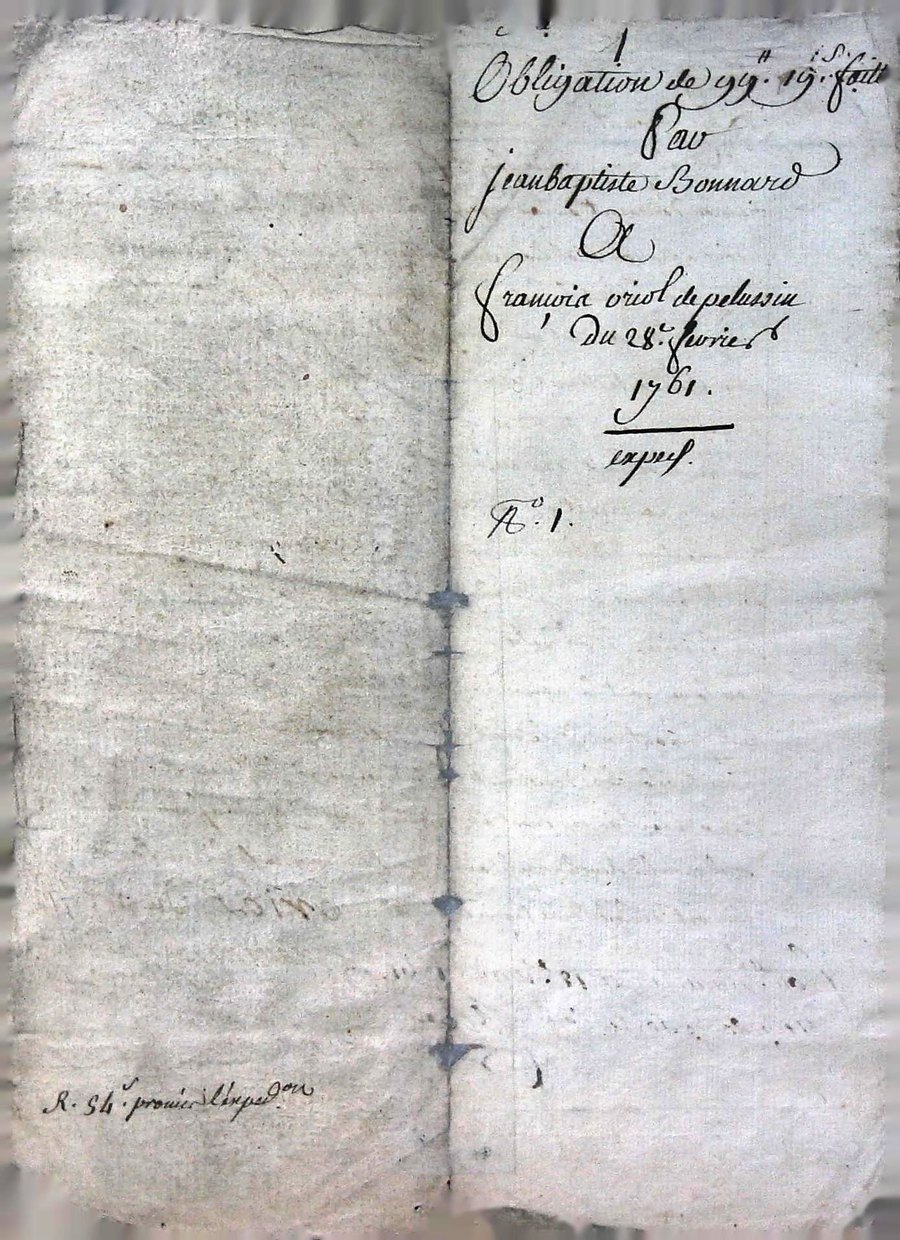 1
Obligation de 99.ᵗᵗ 19.ˢ faitte
Par
jeanbaptiste Bonnard
A
françois oriol de pelussin
Du 28.ᵉ fevrier
1761.
exped.
N.º 1.
R. 54.ˢ l'exped.ᵒⁿ